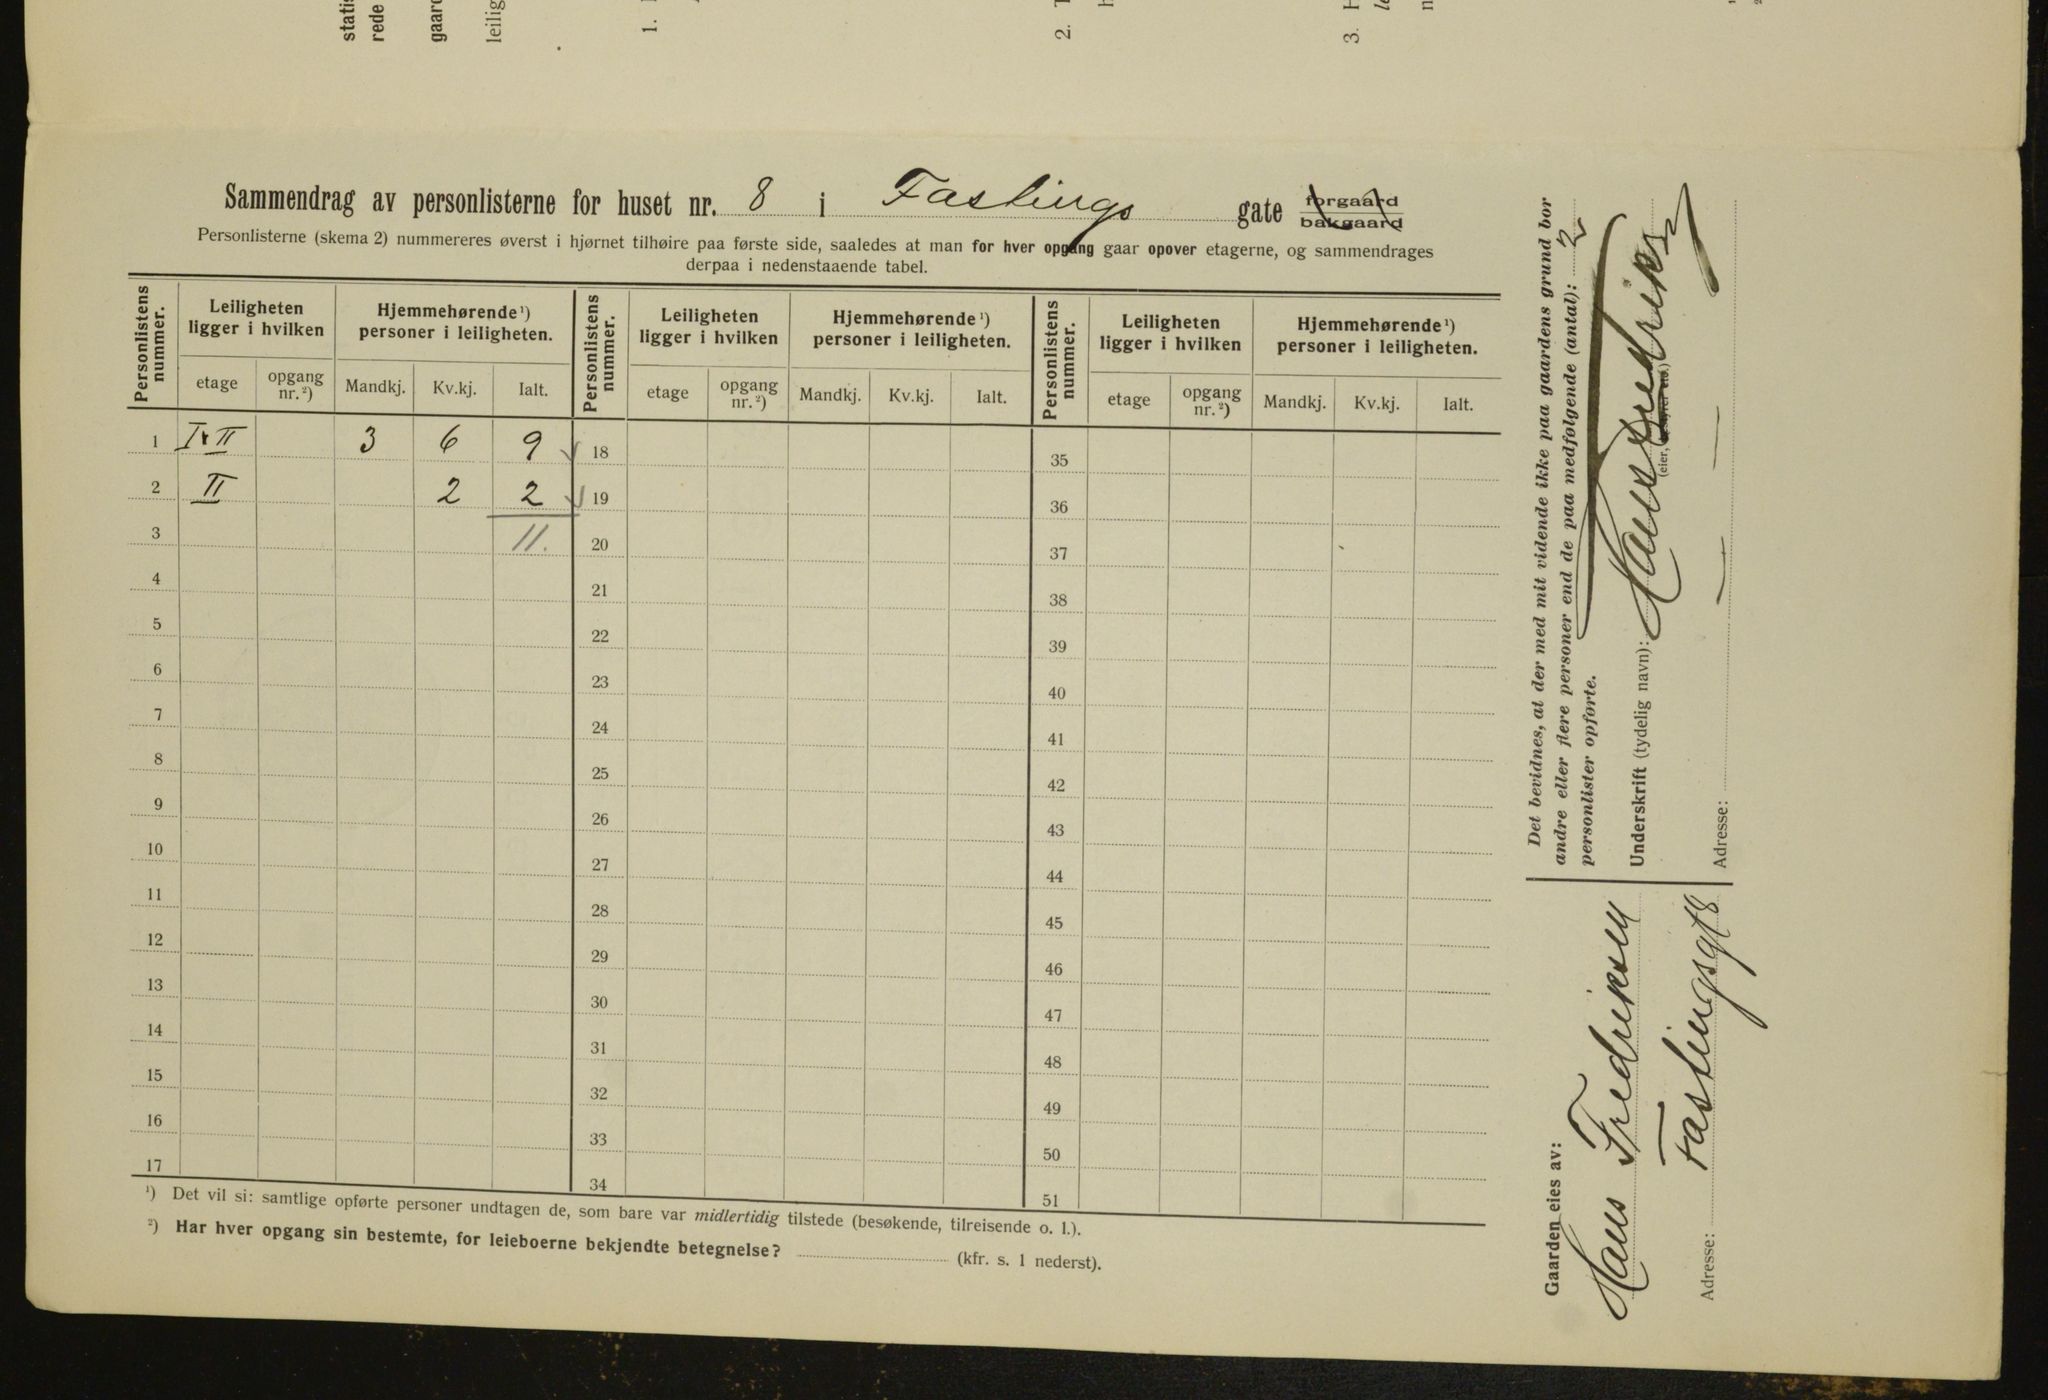 statis
rede
gaard
leilig
1.
2. T
h
3. H
le
n
Sammendrag av personlisterne for huset nr. 8 i Fastings gate forgaard bakgaard
Personlisterne (skema 2) nummereres øverst i hjørnet tilhøire paa første side, saaledes at man for hver opgang gaar opover etagerne, og sammendrages
derpaa i nedenstaaende tabel.
Personlistens nummer. Leiligheten ligger i hvilken Hjemmehørende ¹) personer i leiligheten. Personlistens nummer. Leiligheten ligger i hvilken Hjemmehørende ¹) personer i leiligheten. Personlistens nummer. Leiligheten ligger i hvilken Hjemmehørende ¹) personer i leiligheten.
etage opgang nr. ²) Mandkj. Kv.kj. Ialt. etage opgang nr. ²) Mandkj. Kv.kj. Ialt. etage opgang nr. ²) Mandkj. Kv.kj. Ialt.
1 I & II 3 6 9 18 35
2 II 2 2 19 36
3 11. 20 37
4 21 38
5 22 39
6 23 40
7 24 41
8 25 42
9 26 43
10 27 44
11 28 45
12 29 46
13 30 47
14 31 48
15 32 49
16 33 50
17 34 51
¹) Det vil si: samtlige opførte personer undtagen de, som bare var midlertidig tilstede (besøkende, tilreisende o. l.).
²) Har hver opgang sin bestemte, for leieboerne bekjendte betegnelse? (kfr. s. 1 nederst).
Det bevidnes, at der med mit vidende ikke paa gaardens grund bor
andre eller flere personer end de paa medfølgende (antal): 2
personlister opførte.
Underskrift (tydelig navn): Hans Fredriksen
Adresse: — " —
Gaarden eies av:
Hans Fredriksen
Adresse: Fastingsgt 8